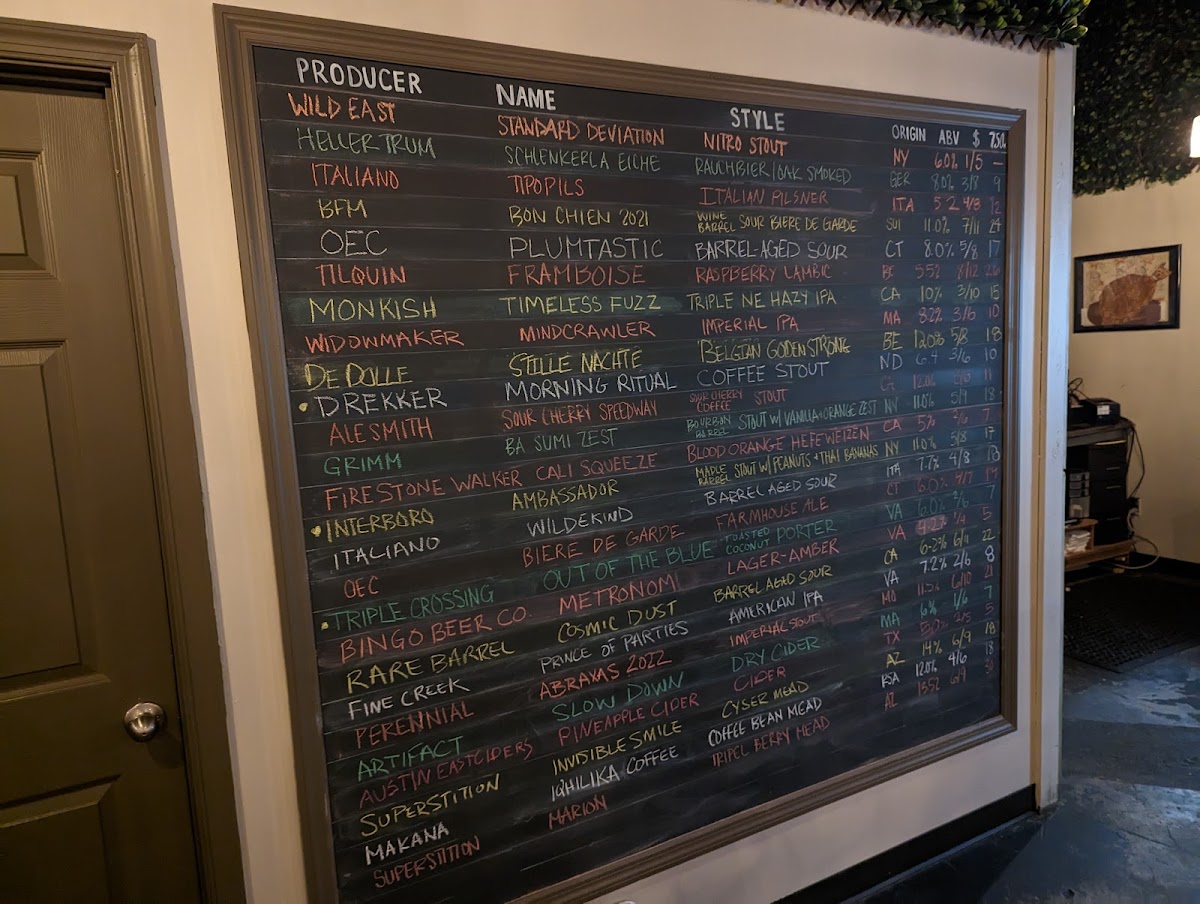 PRODUCER NAME STYLE ORIGIN ABV $
WILD EAST STANDARD DEVIATION NITRO STOUT NY 6.0% 1/5 —
HELLER TRUM SCHLENKERLA EICHE RAUCHBIER/OAK SMOKED GER 8.0% 3/8 9
ITALIANO TIPOPILS ITALIAN PILSNER ITA 5.2 4/8 12
BFM BON CHIEN 2021 WINE BARREL SOUR BIERE DE GARDE SUI 11.0% 7/11 24
OEC PLUMTASTIC BARREL-AGED SOUR CT 8.0% 5/8 17
TILQUIN FRAMBOISE RASPBERRY LAMBIC 8/12
MONKISH TIMELESS FUZZ TRIPLE NE HAZY IPA CA 10% 3/10 15
WIDOWMAKER MINDCRAWLER IMPERIAL IPA MA 8.2% 3/6 10
DE DOLLE STILLE NACHTE BELGIAN GODEN STRONG BE 12.0% 5/8 18
• DREKKER MORNING RITUAL COFFEE STOUT ND 6.4 3/6 10
ALESMITH SOUR CHERRY SPEEDWAY SOUR CHERRY COFFEE STOUT 12.0% 11
GRIMM BA SUMI ZEST BOURBON BARREL STOUT W/ VANILLA + ORANGE ZEST NY 11.0% 5/9 18
FIRESTONE WALKER CALI SQUEEZE BLOOD ORANGE HEFEWEIZEN CA 5% 7
• INTERBORO AMBASSADOR MAPLE BARREL STOUT W/ PEANUTS + THAI BANANAS NY 11.0% 5/8 17
ITALIANO WILDEKIND BARREL AGED SOUR ITA 7.7% 4/8 13
OEC BIERE DE GARDE FARMHOUSE ALE CT 6.0% 4/7
• TRIPLE CROSSING OUT OF THE BLUE TOASTED COCONUT PORTER VA 6.0% 7
BINGO BEER CO. METRONOMI LAGER-AMBER VA 5
RARE BARREL COSMIC DUST BARREL AGED SOUR CA 6.2% 6/11 22
FINE CREEK PRINCE OF PARTIES AMERICAN IPA VA 7.2% 2/6 8
PERENNIAL ABRAXAS 2022 IMPERIAL STOUT MO 11.5% 6/10 21
ARTIFACT SLOW DOWN DRY CIDER MA 6% 1/6 7
AUSTIN EASTCIDERS PINEAPPLE CIDER CIDER TX 5
SUPERSTITION INVISIBLE SMILE CYSER MEAD AZ 14% 6/9 18
MAKANA IQHILIKA COFFEE COFFEE BEAN MEAD RSA 12.0% 4/6 18
SUPERSTITION MARION TRIPEL BERRY MEAD 6/9